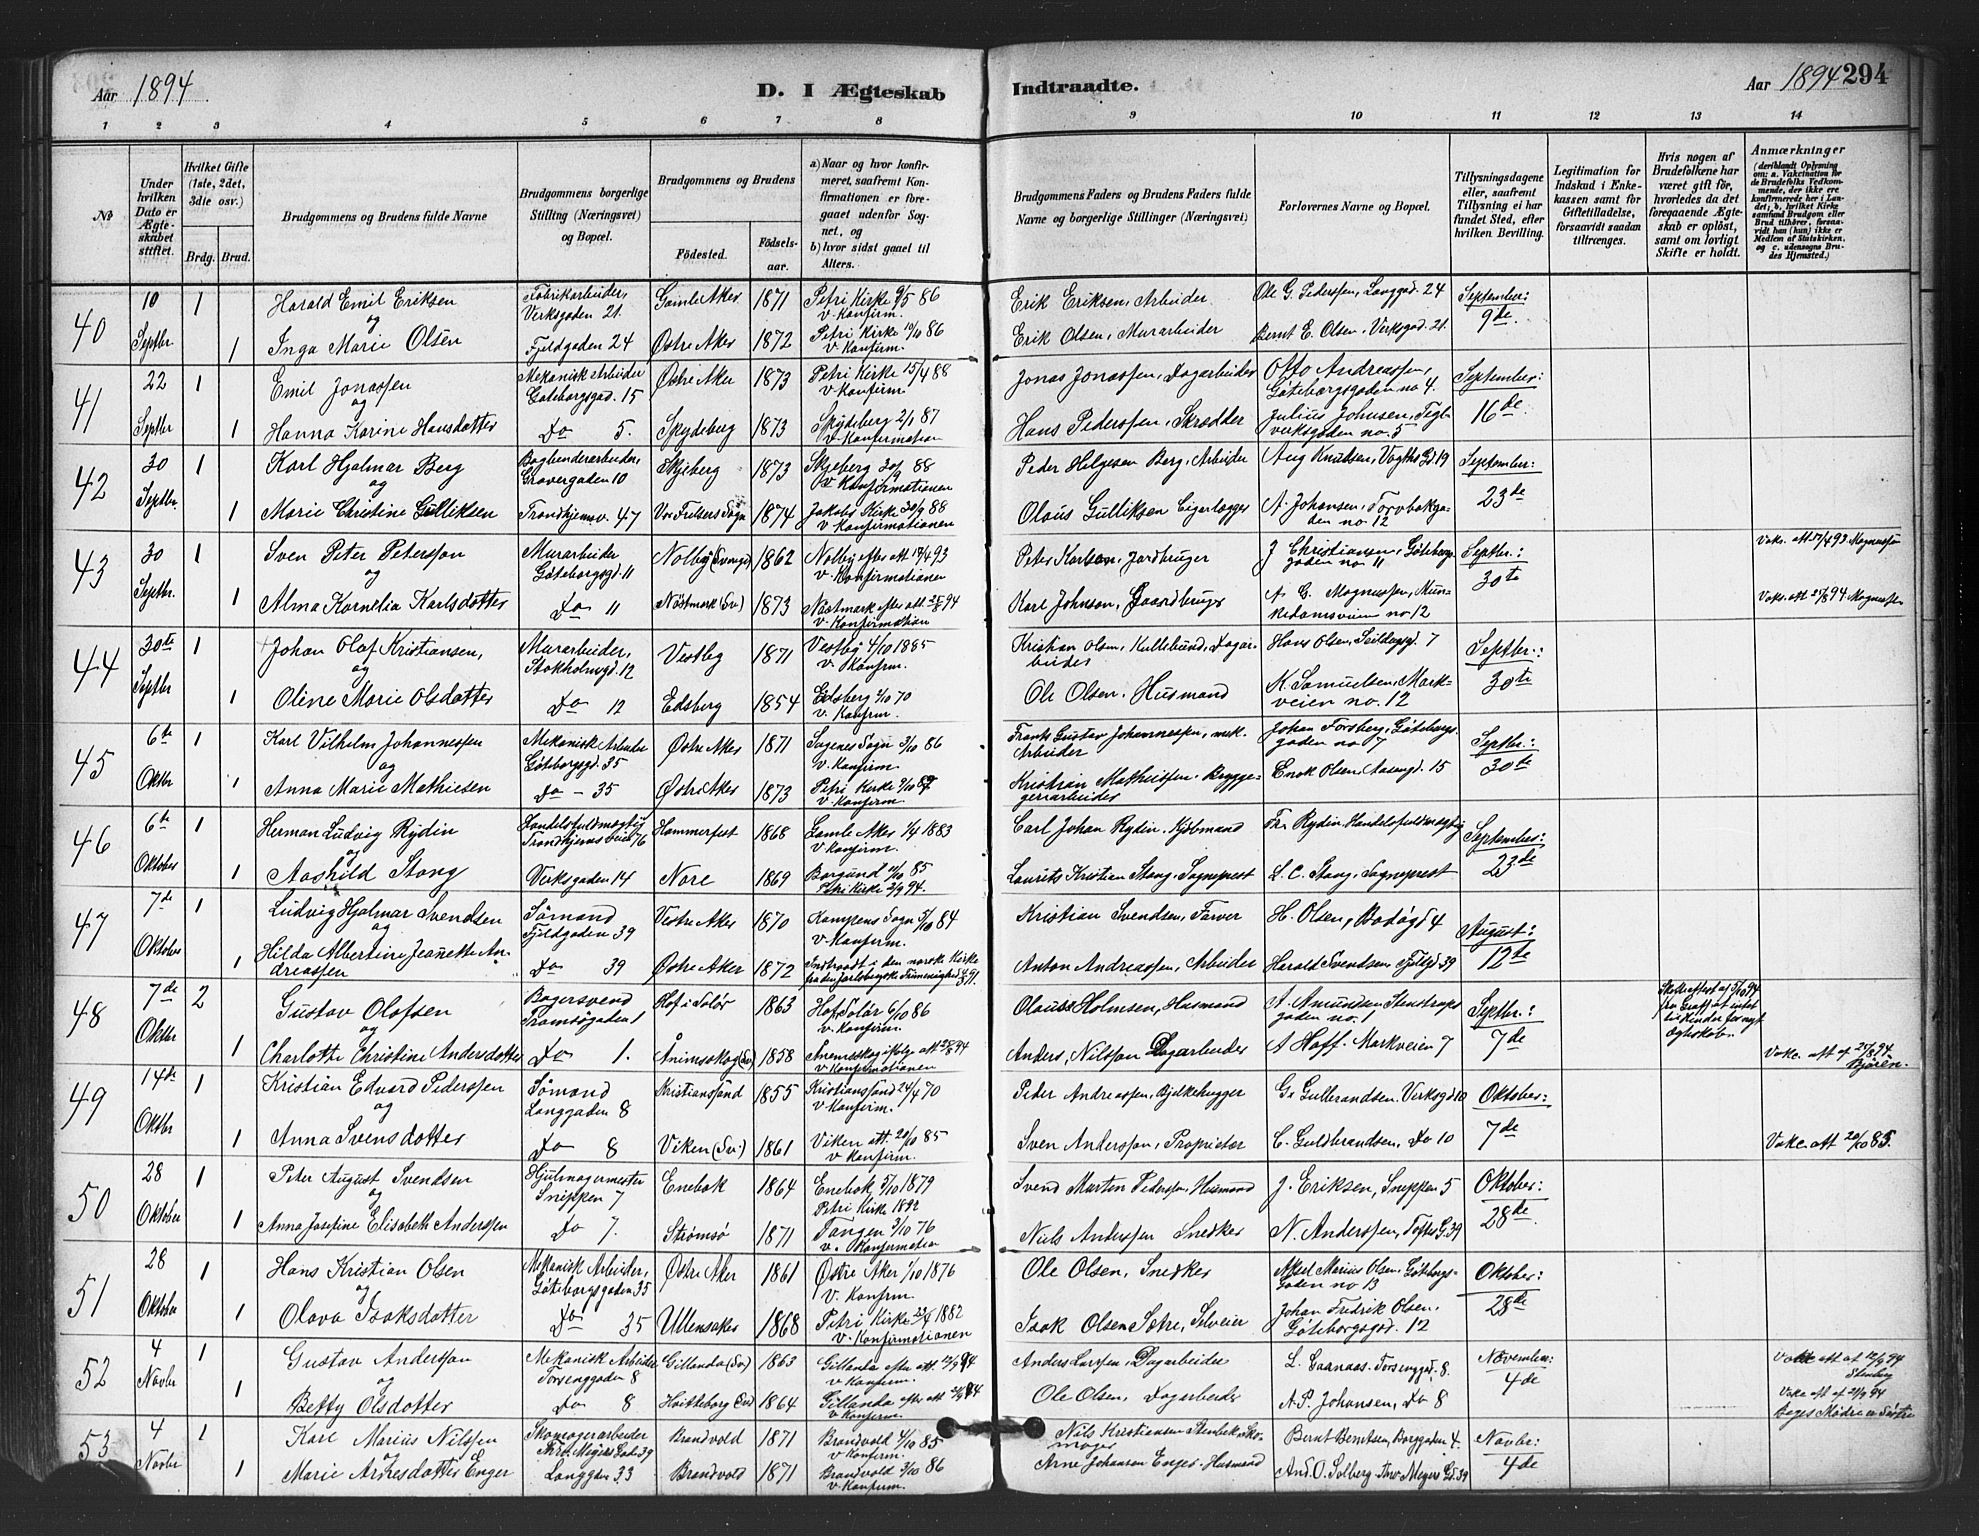 Aar 1894.
D. I Ægteskab Indtraadte.
Aar 1894 294
1 2 3 4 5 6 7 8 9 10 11 12 13 14
No
Under hvilken Dato er Ægteskabet stiftet.
Hvilket Gifte (1ste, 2det, 3die osv.)
Brdg. Brud.
Brudgommens og Brudens fulde Navne
Brudgommens borgerlige Stilling (Næringsvei) og Bopæl.
Brudgommens og Brudens
Fødested. Fødselsaar.
a) Naar og hvor konfirmeret, saafremt Konfirmationen er foregaaet udenfor Sognet, og
b) hvor sidst gaaet til Alters.
Brudgommens Faders og Brudens Faders fulde Navne og borgerlige Stillinger (Næringsvei)
Forlovernes Navne og Bopæl.
Tillysningsdagene eller, saafremt Tillysning ei har fundet Sted, efter hvilken Bevilling.
Legitimation for Indskud i Enkekassen samt for Giftetilladelse, forsaavidt saadan tiltrænges.
Hvis nogen af Brudefolkene har været gift før, hvorledes da det foregaaende Ægteskab er opløst, samt om lovligt Skifte er holdt.
Anmærkninger
40 10 Septbr. 1 Harald Emil Eriksen Fabrikarbeider, Verksgaden 21. Gamle Aker 1871 Petri Kirke 9/5 86 v. Konfirm. Erik Eriksen, Arbeider Ole G. Pederssen, Langgad. 24 September: 9de
og
1 Inga Marie Olsen Fjeldgaden 24 Østre Aker 1872 Petri Kirke 10/10 86 v. Konfirm. Erik Olsen, Murarbeider Bernt E. Olsen, Verksgad. 21.
41 22 Septbr 1 Emil Jonassen Mekanisk Arbeider Gøteborgsgad. 15 Østre Aker 1873 Petri Kirke 15/4 88 v. Konfirm Jonas Jonassen, Dagarbeider Otto Andreassen, Gøteborgsgaden no 4. September: 16de
og
1 Hanna Karine Hansdatter Do 5. Spydeberg 1873 Spydeberg 2/1 87 v. Konfirmation Hans Pederssen, Skrædder Julius Johnsen, Teglverksgaden no. 5
42 30 Septbr. 1 Karl Hjalmar Berg Bogbinderarbeider, Gravergaden 10 Skjeberg 1873 Skjeberg 30/9 88 v. Konfirmationen Peder Helgesen Berg, Arbeider Aug Knutsen, Vogts Gd. 19 September: 23de
og
1 Marie Christine Gulliksen Trondhjemsv. 47 Vor Frelsers Sogn 1874 Jakobs Kirke 30/9 88 v. Konfirmationen Olaus Gulliksen Cigarlægger A. Johansen, Torvbakgaden no. 12
43 30 Septbr. 1 Sven Peter Petersson Murarbeider Gøteborgsgd. 11 Nolby (Sverige) 1862 Nolby efter att 17/4 93 v. Konfirmationen Peter Karlson, Jordbruger J Christiansen, Gøteborgsgaden no 11 Septbr.: 30te Vaks. att 17/4 93 Magnusson
og
1 Alma Kornelia Karlsdotter Do 11 Nøstmark (Sv.) 1873 v. Konfirmation Karl Johnson, Gaardbruger A. G. Magnussen, Munkedamsveien no 12
44 30te Septbr 1 Johan Olaf Kristiansen, Murarbeider, Stokholmsgd. 12 Vestby 1871 Vestby 4/10 1885 v. Konfirm. Kristian Olsen, Kullebund, Dagarbeider Hans Olsen, Seildugsgd. 7 Septbr.: 30te
og
1 Oline Marie Olsdatter Do 12 Edsberg 1854 Edsberg 2/10 70 v. Konfrm. Ole Olsen, Husmand K. Samuelsen, Markveien no. 12
45 6te Oktbr 1 Karl Vilhelm Johannessen Mekanisk Arbeider Gøteborgsgd. 35 Østre Aker 1871 Sagenes Sogn 3/10 86 v. Konfirm. Frants Gustav Johannessen, mek. Arbeider Johan Forsberg, Gøteborgsgaden no 7 Septbr.: 30te
og
1 Anna Marie Mathiesen Do - 35 Østre Aker 1873 Petri Kirke 9/10 87 v. Konfirm. Kristian Mathiessen, Bryggeriarbeider Enok Olsen, Aasengd. 15
46 6te Oktober 1 Herman Ludvig Rydin Handelsfuldmægtig Trondhjems Veien 76 Hammerfest 1868 Gamle Aker 1/4 1883 v. Konfirm. Carl Johan Rydin, Kjøbmand Fr. Rydin, Handelsfuldmægtig September: 23de
og
1 Aashild Stang Verksgaden 14 Nore 1869 Borgund 4/10 85 Petri Kirke 2/9 94. Laurits Kristian Stang, Sogneprest L. C. Stang, Sogneprest
47 7de Oktober 1 Ludvig Hjalmar Svendsen Sømand Fjeldgaden 39 Vestre Aker 1870 Kampens Sogn 5/10 84 v. Konfirm. Kristian Svendsen, Farver H. Olsen, Bodøgd 4 August: 12te
og
1 Hilda Albertine Jeanette Andreassen Do 39 Østre Aker 1872 Indtraadt i den norske Kirke fra den Jarlsbergske Frimenighed Anton Andreassen, Arbeider Harald Svendsen, Fjeldgd 39
48 7de Oktbr 2 Gustav Olafsen Bagersvend Tromsøgaden 1 Hof i Solør 1863 Hof Solør 6/10 86 v. Konfirm. Olaus Holmsen, Husmand A. Amundsen Stenstrupsgaden no. 1 Septbr.: 7de Skifteattest af 5/10 94
og
1 Charlotte Christine Andersdotter Do 1. Ånimskog (Sv) 1858 Ånimskog ifølge att v. Konfirmationen Anders Nilsson Dagarbeider A Hoff, Markveien 7 Vakc. att af 25/8 94 Bjørén.
49 14de Oktbr 1 Kristian Edvard Pederssen Sømand Langgaden 8 Kristianssand 1855 Kristianssand 24/4 70 v Konfirm. Peder Andreassen, Bjelkehugger G. Gulbrandsen, Verksgd 10 Oktober: 7de
og
1 Anna Svensdotter Do 8 Viken (Sv.) 1861 Viken att. 20/10 85 v Konfirm. Sven Andersson, Proprietær C. Guldbrandsen, Do 10 Vakc. att 20/10 85.
50 28 Oktober 1 Peter August Svendsen Hjulmagermester Snippen 7 Enebak 1864 Enebak 5/10 1879 Petri Kirke 1892 Svend Martin Pedersen, Husmand J. Eriksen, Snippen 5 Oktober: 28de
og
1 Anna Josefine Elisabeth Anderssen Do 7. Strømsø 1871 Tangen v. Konfirmation Niels Anderssen Snedker N. Anderssen, Toftes G. 39
51 28 Oktober 1 Hans Kristian Olsen Mekanisk Arbeider, Gøteborgsgaden 35 Østre Aker 1861 Østre Aker 1/10 1876 v. Konfrm. Ole Olsen, Snedker Marius Olsen, Gøteborgsgaden no 13 Oktober: 28de
og
1 Olava Isaksdatter Do 35 Ullensaker 1868 Petri Kirke 1882 v. Konfirmationen Isak Olsen Sætre, Selveier Johan Fredrik Olsen, Gøteborgsgd. 12
52 4 Novbr 1 Gustav Andersson Mekanisk Arbeider Torsenggaden 8 Gillanda (Sv.) 1863 v. Konfirm. Anders Larssen, Dagarbeider L. Gaarnaas, Torsenggad. 8. November: 4de
og
1 Betty Olsdotter Do 8 1864 Gillanda efter att v. Konfirm. Ole Olsen, Dagarbeider A. P. Johansen, Do 8
53 4 Novbr 1 Karl Marius Nilssen Skomagerarbeider Thv. Meyers Gade 39 Brandvold 1871 Brandvold 4/10 85 v. Konfirm. Nils Kristiansen Stenbek, Skomager Bernt Berntsen, Borggaden 4. Novbr: 4de
og
1 Marie Arnesdatter Enger Langgdn 33 Brandvold 1871 Brandvold 3/10 86 v. Konfirm. Arne Johansen Enger, Husmand And. O. Solberg, Thv. Meyers Gd. 39